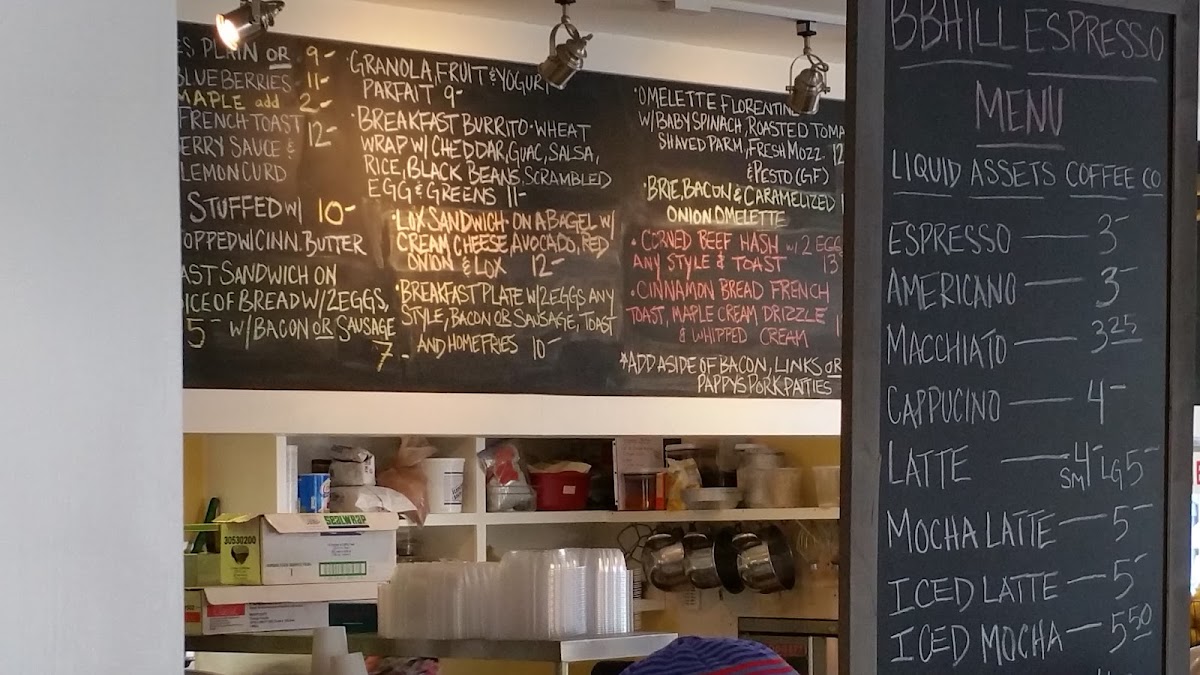 PLAIN OR 9-
BLUEBERRIES 11-
MAPLE add 2-
FRENCH TOAST 12-
ERRY SAUCE &
LEMON CURD
STUFFED W/ 10-
OPPED W/ CINN. BUTTER
AST SANDWICH ON
ICE OF BREAD W/ 2 EGGS,
5- W/ BACON OR SAUSAGE
7-
• GRANOLA, FRUIT & YOGURT
PARFAIT 9-
• BREAKFAST BURRITO • WHEAT
WRAP W/ CHEDDAR, GUAC, SALSA,
RICE, BLACK BEANS, SCRAMBLED
EGG & GREENS 11-
• LOX SANDWICH • ON A BAGEL W/
CREAM CHEESE, AVOCADO, RED
ONION & LOX 12-
• BREAKFAST PLATE W/ 2 EGGS ANY
STYLE, BACON OR SAUSAGE, TOAST
AND HOMEFRIES 10-
• OMELETTE FLORENTINE
W/ BABY SPINACH, ROASTED TOMA
SHAVED PARM, FRESH MOZZ. 12
& PESTO (GF)
• BRIE, BACON & CARAMELIZED
ONION OMELETTE
• CORNED BEEF HASH W/ 2 EGGS
ANY STYLE & TOAST 13
• CINNAMON BREAD FRENCH
TOAST, MAPLE CREAM DRIZZLE
& WHIPPED CREAM
*ADD A SIDE OF BACON, LINKS OR
PAPPYS PORK PATTIES
BBHILL ESPRESSO
MENU
LIQUID ASSETS COFFEE CO
ESPRESSO — 3-
AMERICANO — 3-
MACCHIATO — 3 25
CAPPUCINO — 4-
LATTE — SM 4- LG 5-
MOCHA LATTE — 5-
ICED LATTE — 5-
ICED MOCHA — 5 50
SEALWRAP
30530200